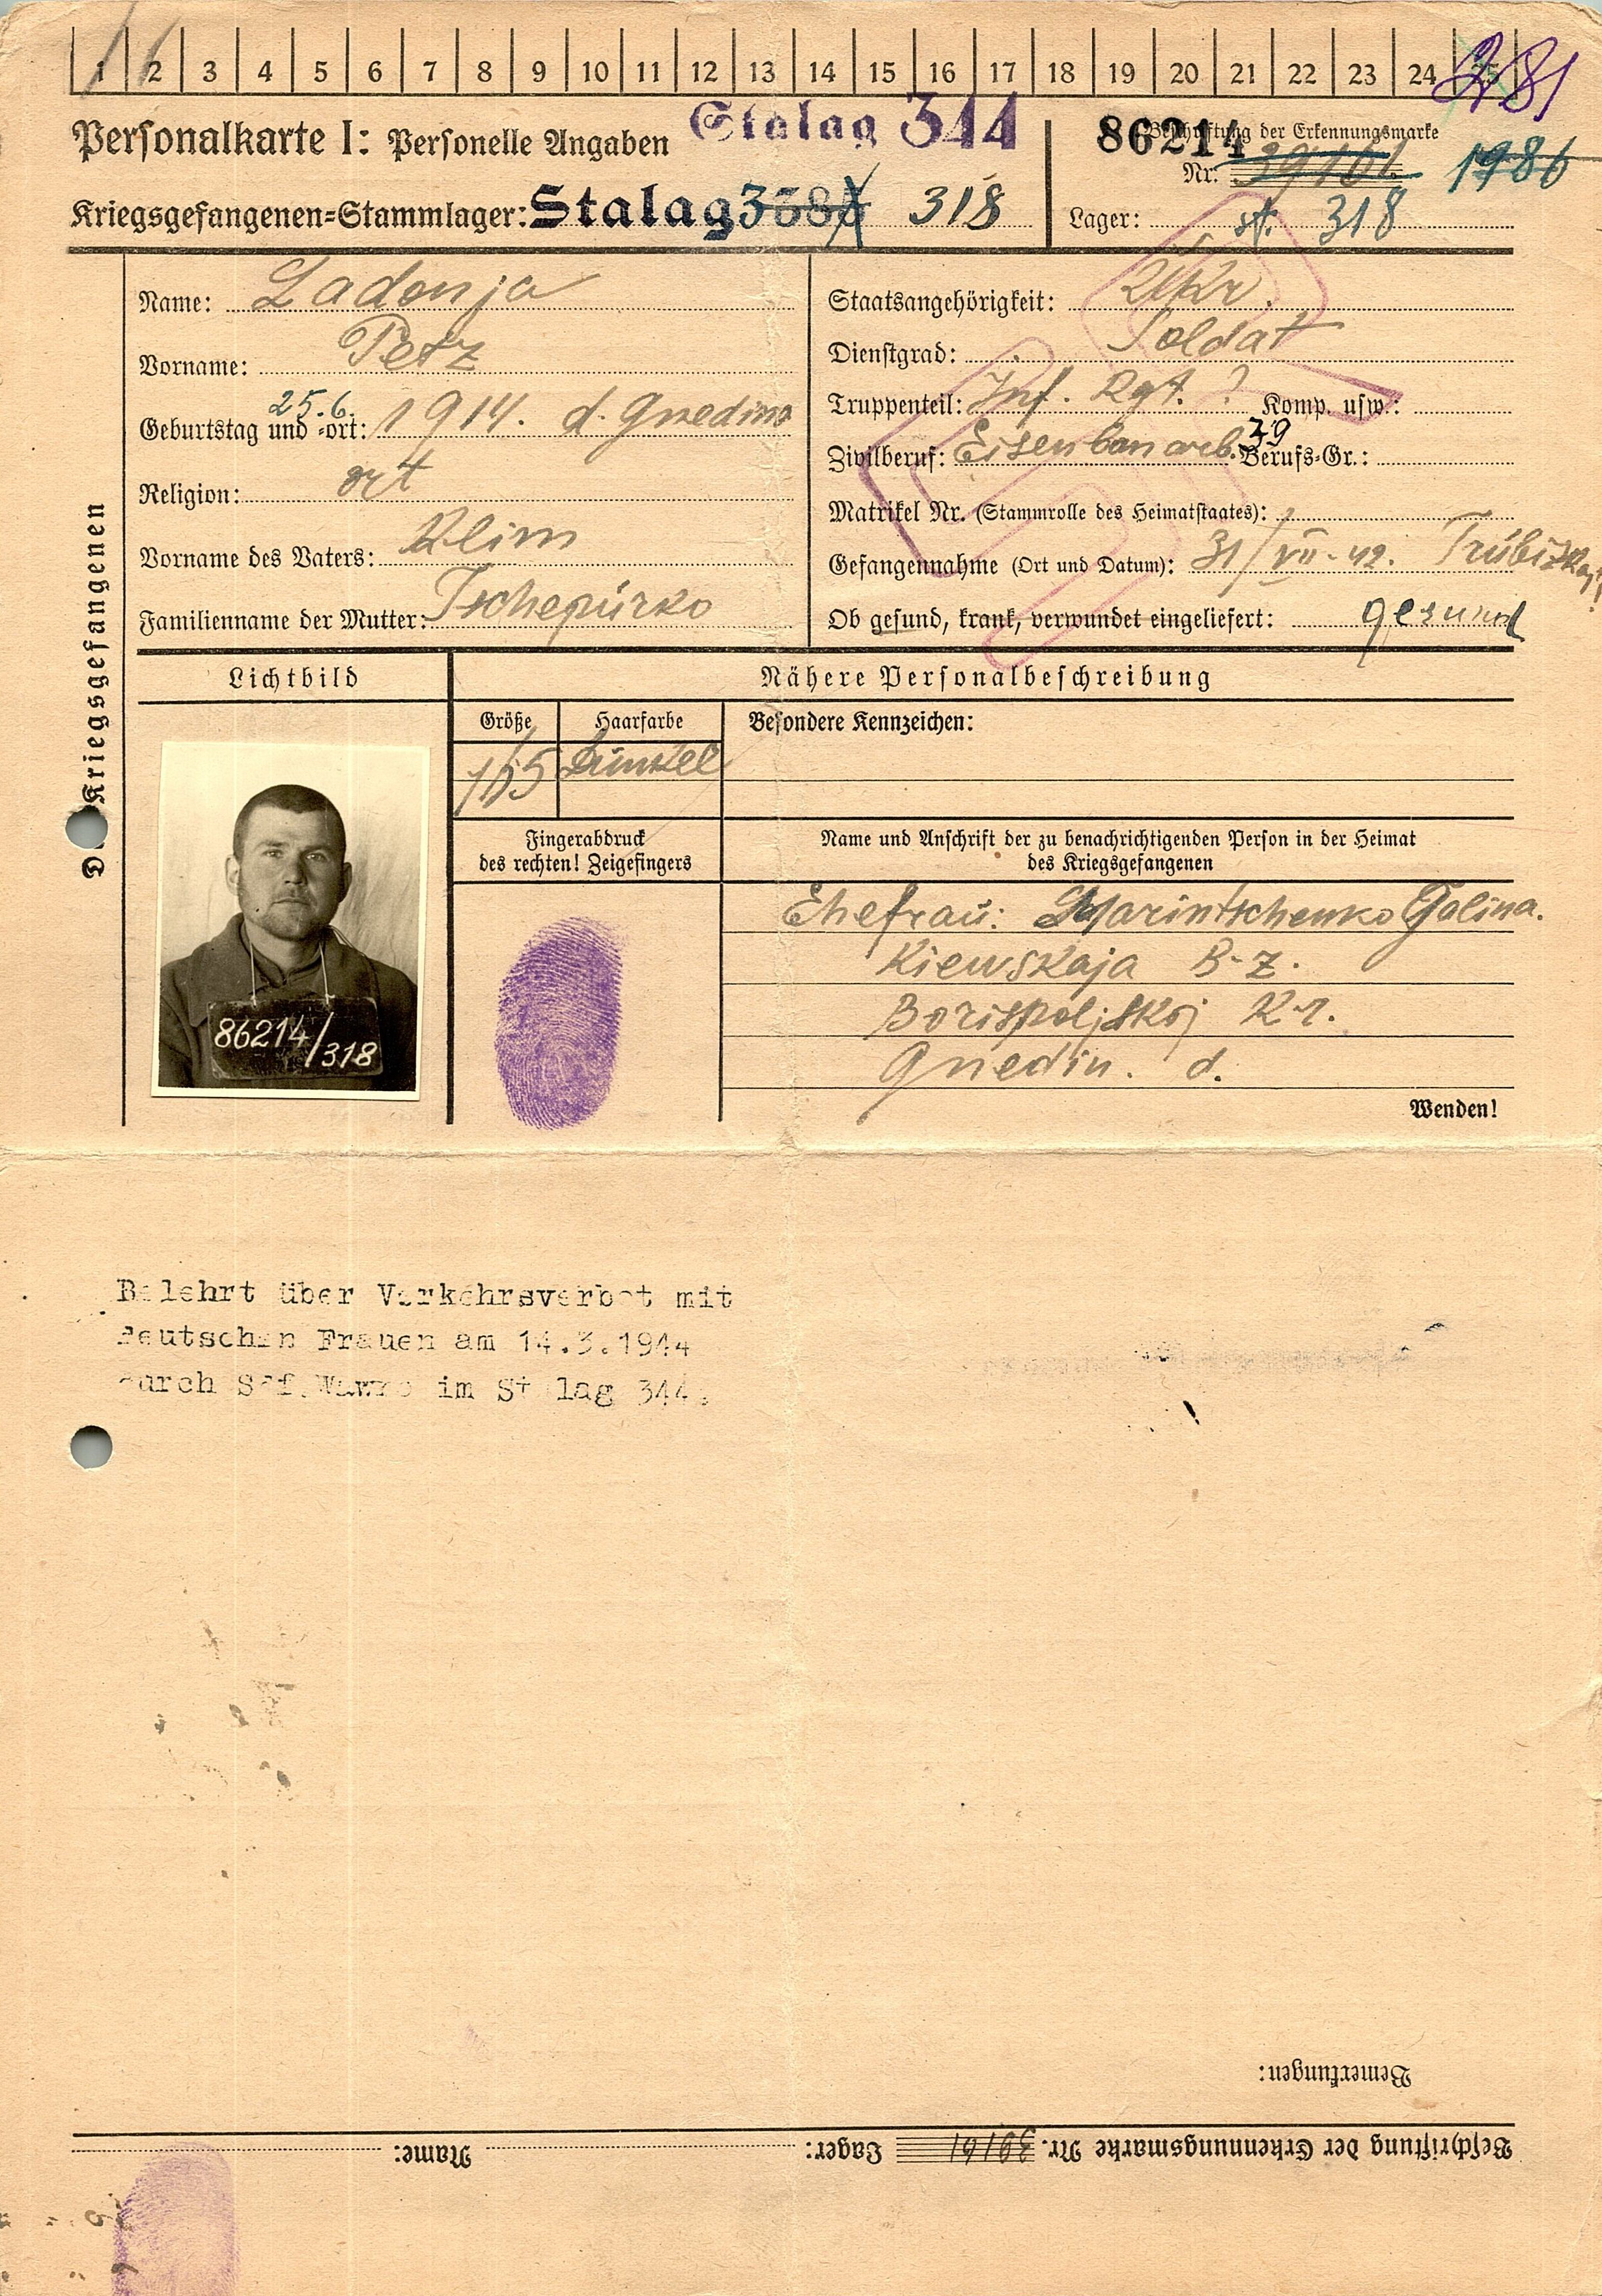 1 2 3 4 5 6 7 8 9 10 11 12 13 14 15 16 17 18 19 20 21 22 23 24 25
281
Personalkarte I: Personelle Angaben
Stalag 344
86214
Beschriftung der Erkennungsmarke
Nr. 39161
1986
Kriegsgefangenen=Stammlager: Stalag 318
Lager: st. 318
Des Kriegsgefangenen
Name: Ladonja
Vorname: Petz
Geburtstag und =ort: 25.6. 1914. d. Gnedino
Religion: ort
Vorname des Vaters: Klim
Familienname der Mutter: Tschepurko
Staatsangehörigkeit: Ukr.
Dienstgrad: Soldat
Truppenteil: Inf. Rgt. ? Komp. usw.:
Zivilberuf: Eisenbanarb. Berufs=Gr.: 39
Matrikel Nr. (Stammrolle des Heimatstaates):
Gefangennahme (Ort und Datum): 31/VII-42.
Ob gesund, krank, verwundet eingeliefert: gesund
Lichtbild
Nähere Personalbeschreibung
Größe
Haarfarbe
Besondere Kennzeichen:
165
Dunkel
86214/318
Fingerabdruck
des rechten! Zeigefingers
Name und Anschrift der zu benachrichtigenden Person in der Heimat
des Kriegsgefangenen
Ehefrau: Marintschenko Galina.
Kiewskaja B-z.
Borispoljskoj K-r.
Gnedin. d.
Wenden!
Belehrt über Verkehrsverbot mit
deutschen Frauen am 14.3.1944
durch im Stalag 344.
Bemerkungen:
Beschriftung der Erkennungsmarke Nr. 39161 Lager: Name: